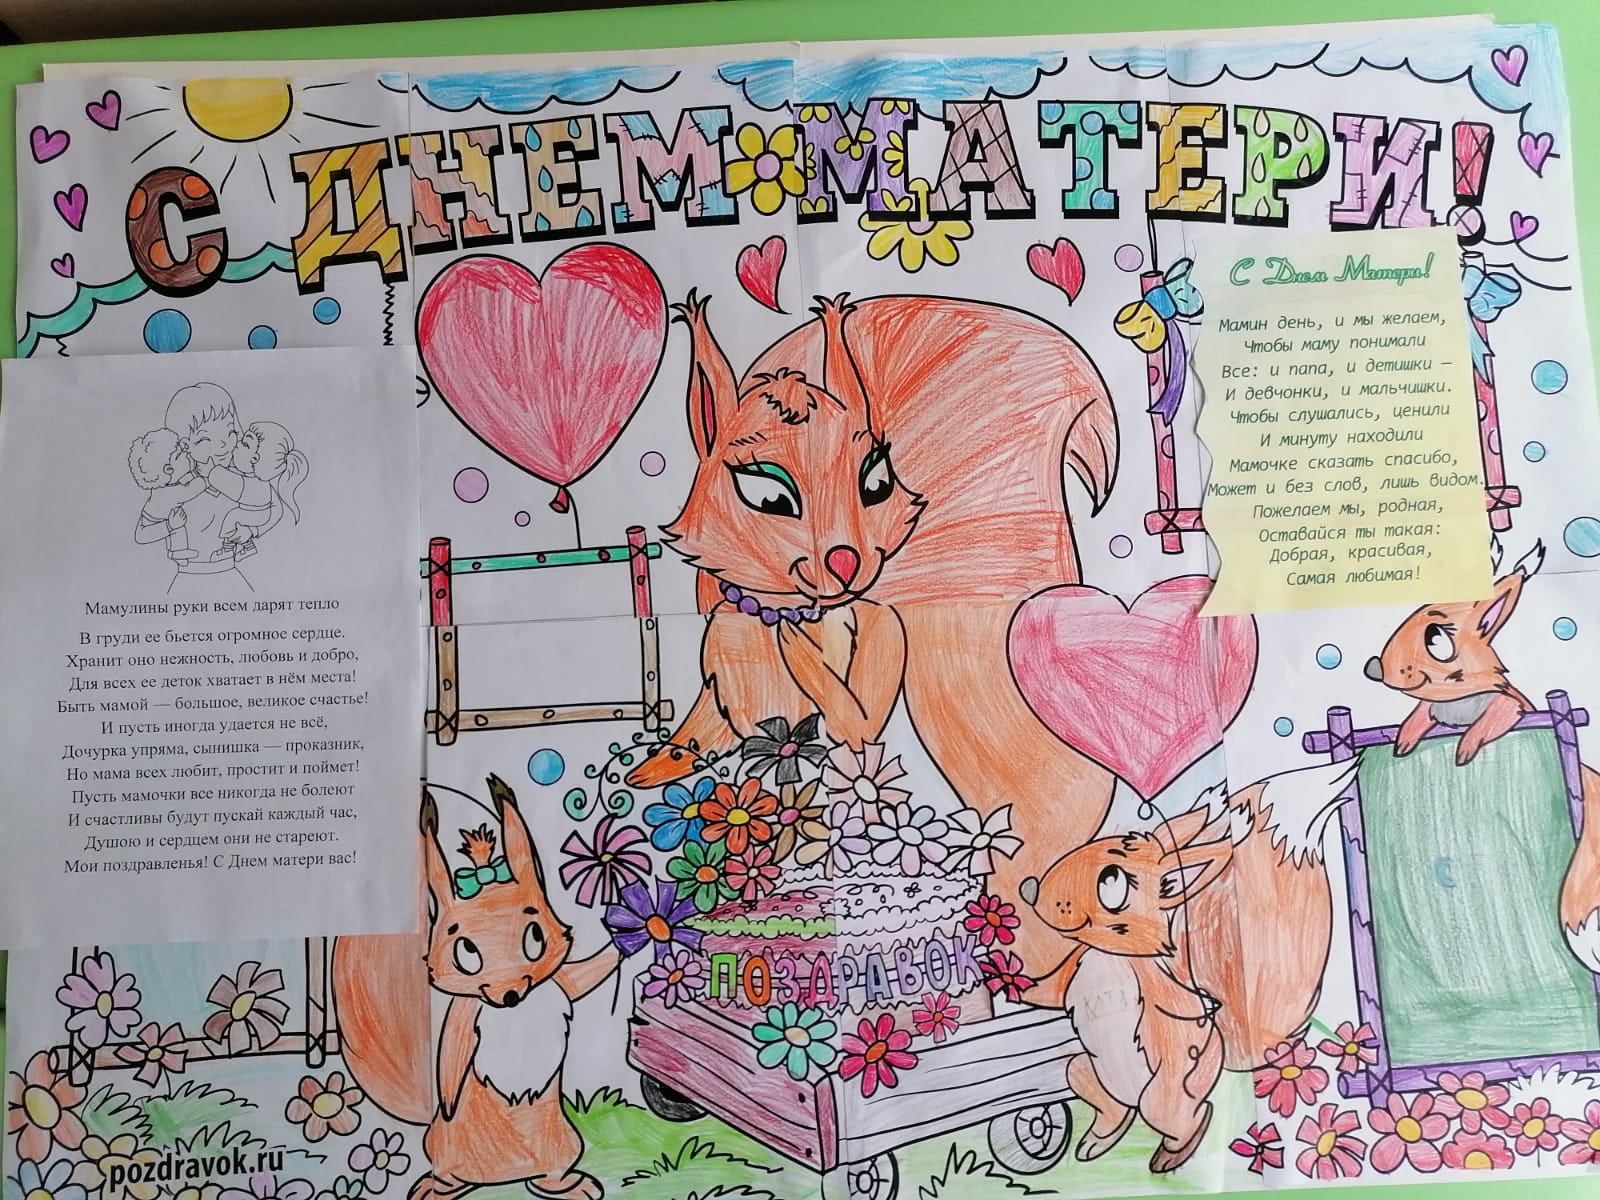 С ДНЕМ МАТЕРИ!
С Днем Матери!
Мамин день, и мы желаем,
Чтобы маму понимали
Все: и папа, и детишки –
И девчонки, и мальчишки.
Чтобы слушались, ценили
И минуту находили
Мамочке сказать спасибо,
Может и без слов, лишь видом.
Пожелаем мы, родная,
Оставайся ты такая:
Добрая, красивая,
Самая любимая!
Мамулины руки всем дарят тепло
В груди ее бьется огромное сердце.
Хранит оно нежность, любовь и добро,
Для всех ее деток хватает в нём места!
Быть мамой — большое, великое счастье!
И пусть иногда удается не всё,
Дочурка упряма, сынишка — проказник,
Но мама всех любит, простит и поймет!
Пусть мамочки все никогда не болеют
И счастливы будут пускай каждый час,
Душою и сердцем они не стареют.
Мои поздравленья! С Днем матери вас!
ПОЗДРАВОК
КАТЯ
pozdravok.ru